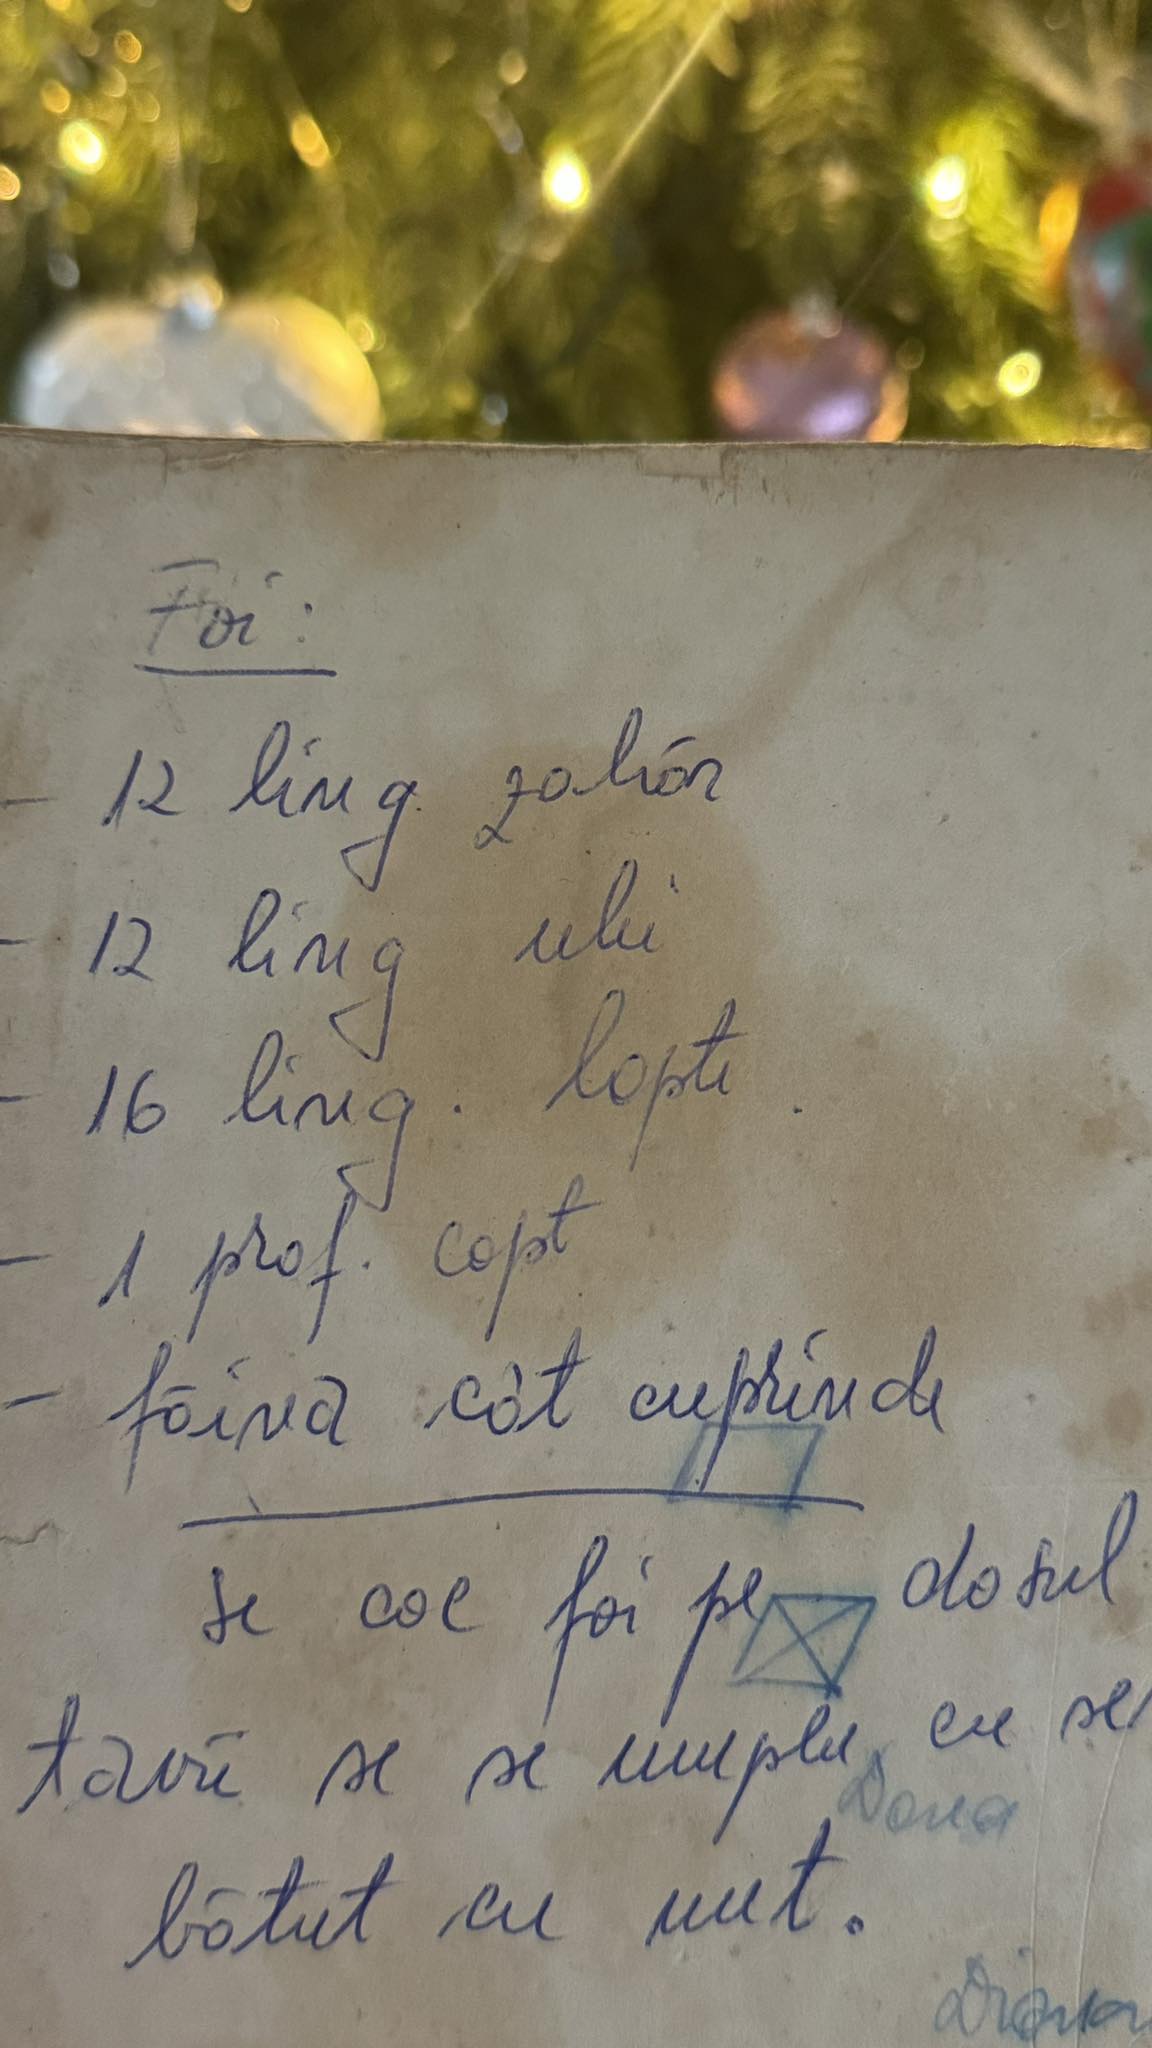 Foi:
- 12 ling. zahăr
- 12 ling ulei
- 16 ling. lapte.
- 1 praf. copt
- făină cât cuprinde
se coc foi pe dosul
tăvii se se umple cu se
Dana
bătut cu unt.
Diana